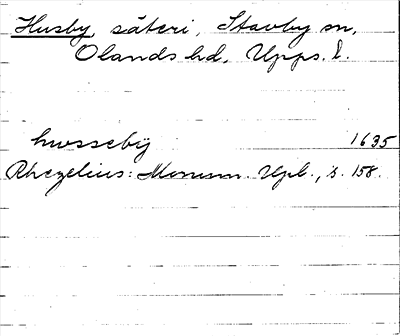 Husby, säteri, Stavby sn,
Olands hd, Upps. l.
husseby 1635
Rhezelius: Monum. Upl., s. 158.